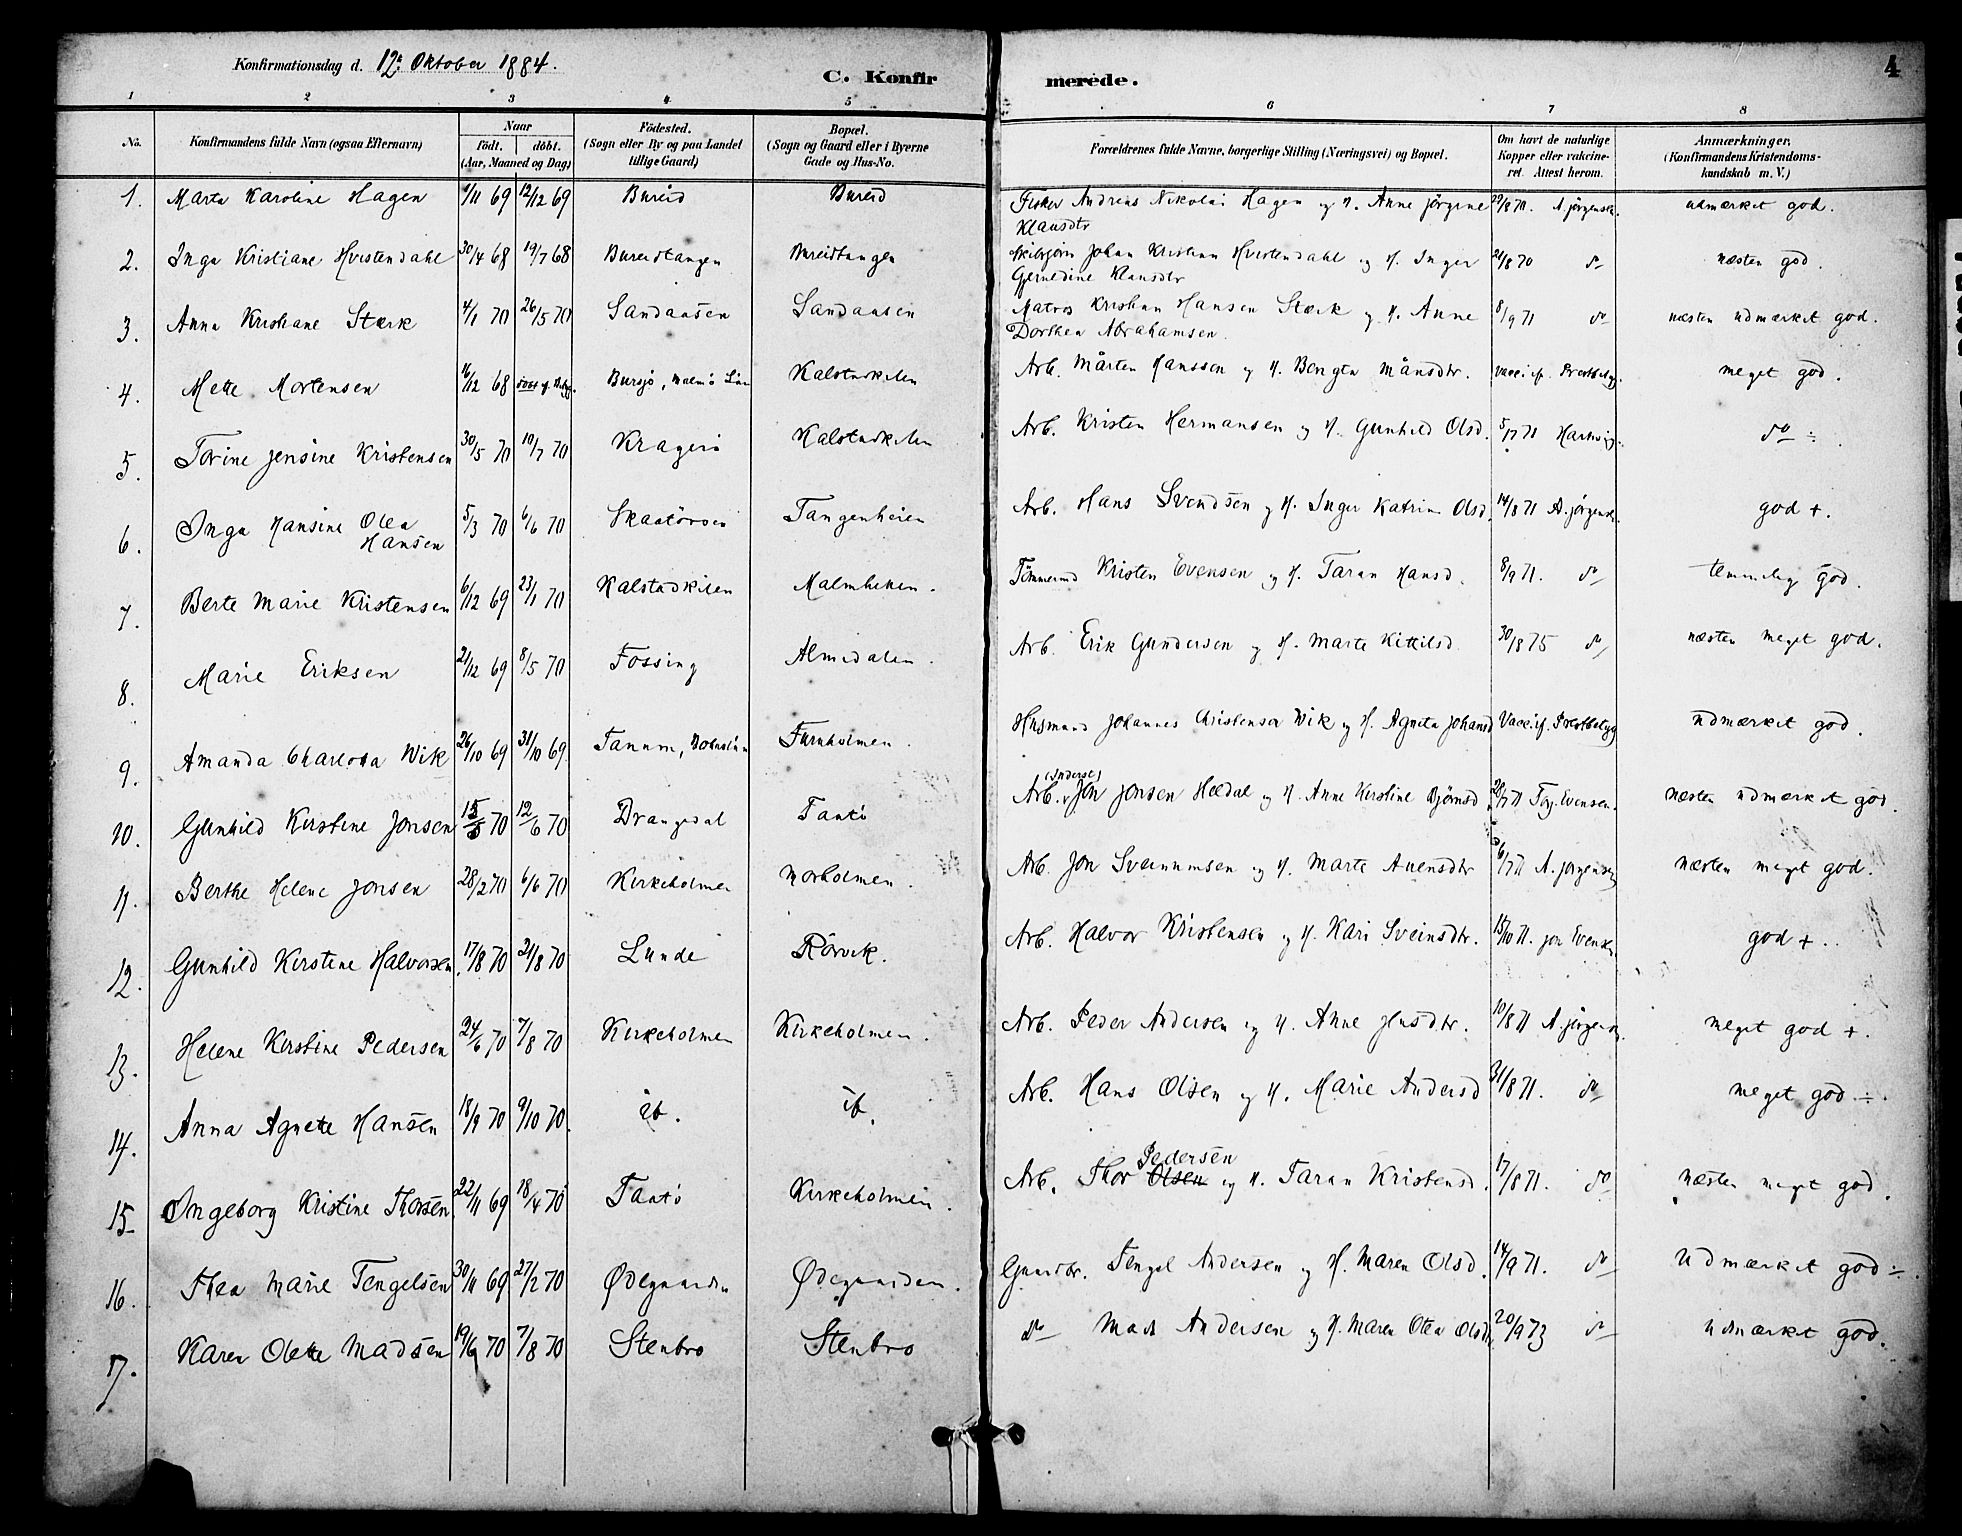 Konfirmationsdag d. 12te Oktober 1884.
C. Konfirmerede.
4
1 2 3 4 5 6 7 8
No.
Konfirmandens fulde Navn (ogsaa Efternavn)
Naar
födt. döbt.
(Aar, Maaned og Dag)
Födested.
(Sogn eller By og paa Landet
tillige Gaard)
Bopæl.
(Sogn og Gaard eller i Byerne
Gade og Hus-No.
Forældrenes fulde Navne, borgerlige Stilling (Næringsvei) og Bopæl.
Om havt de naturlige
Kopper eller vakcine-
ret. Attest herom.
Anmærkninger.
(Konfirmandens Kristendoms-
kundskab m. V.)
1. Marta Karoline Hagen 4/11 69 12/12 69 Bureid Bureid Fisker Andreas Nikolai Hagen og H. Anne Jörgine 29/8 70. A. Jörgensen. udmærket god.
Klausdtr
2. Inga Kristiane Hvistendahl 30/4 68 19/7 68 Bureidtangen Bureidtangen Skibsförer Johan Kristian Hvistendahl og H. Inger 24/8 70 do næsten god.
Gjernedine Klausdtr
3. Anna Kristiane Stærk 4/1 70 26/5 70 Sandaasen Sandaasen Matros Kristian Hansen Stærk og H. Anne 8/9 71 do næsten udmærket god.
Dorthea Abrahamsen.
4. Mette Mortensen 16/12 68 Bursjö, Malmö Län Kalstadkilen Arb. Mårten Hansson og H. Bengta Månsdtr. vacc. if. Prestbetyg. meget god.
5. Torine Jensine Kristensen 30/5 70 10/7 70 Kragerö Kalstadkilen Arb. Kristen Hermansen og H. Gunhild Olsd. 5/7 71 Hartvig do ÷.
6. Inga Hansine Olea Hansen 5/3 70 6/6 70 Skaatörsen Tangenheien Arb. Hans Svendsen og H. Inger Katrine Olsd. 14/8 71 A. Jörgensen. god +.
7. Berte Marie Kristensen 6/12 69 23/1 70 Kalstadkilen Malmheken. Tömmermd Kristen Evensen og H. Taran Hansd. 8/9 71. do temmelig god.
8. Marie Eriksen 21/12 69 8/5 70 Fossing Almedalen. Arb. Erik Gundersen og H. Marte Kittilsd. 30/8 75 do næsten meget god.
9. Amanda Charlotta Wik 26/10 69 31/10 69. Tanum, Bohuslän Furuholmen. Husmand Johannes Christenson Wik og H. Agneta Johansd Vacc. if. Prestbetyg udmærket god.
10. Gunhild Kirstine Jonsen 15/5 70 12/6 70 Drangedal Taatö Arb. Jon Jonsen Heldal og H. Anne Kirstine Björnsd 20/7 71 Torj. Evensen. næsten udmærket god.
11. Berthe Helene Jonsen 28/2 70 6/6 70 Kirkeholmen Norholmen. Arb. Jon Sveinumsen og H. Marte Auensdtr 6/7 71 A. Jörgensen næsten meget god.
12. Gunhild Kirstine Halvorsen. 17/8 70 21/8 70 Lunde Rörvik. Arb. Halvor Kristensen og H. Kari Sveinsdtr. 15/10 71. Jon Evensen god +.
13. Helene Kirstine Pedersen 24/6 70 7/8 70 Kirkeholmen Kirkeholmen. Arb. Peder Andersen og H. Anne Jensdtr. 10/8 71 A. Jörgensen. meget god +.
14. Anna Agnette Hansen 18/9 70 9/10 70. ib. ib. Arb. Hans Olsen og H. Marie Andersd 31/8 71. do meget god ÷.
15. Ingeborg Kristine Thorsen 22/11 69 18/4 70 Taatö Kirkeholmen. Arb. Thor Olsen Pedersen og H. Taran Kristensd. 17/8 71. do næsten meget god.
16. Thea Marie Tengelsen 30/11 69 27/2 70 Ødegaarden Ødegaarden. Gaardbr. Tengel Andersen og H. Maren Olsd. 14/9 71. do Udmærket god ÷.
17. Karen Olette Madsen 19/6 70 7/8 70 Stenbro Stenbro do Mads Andersen og H. Maren Olea Olsdtr 20/9 73 do udmærket god.